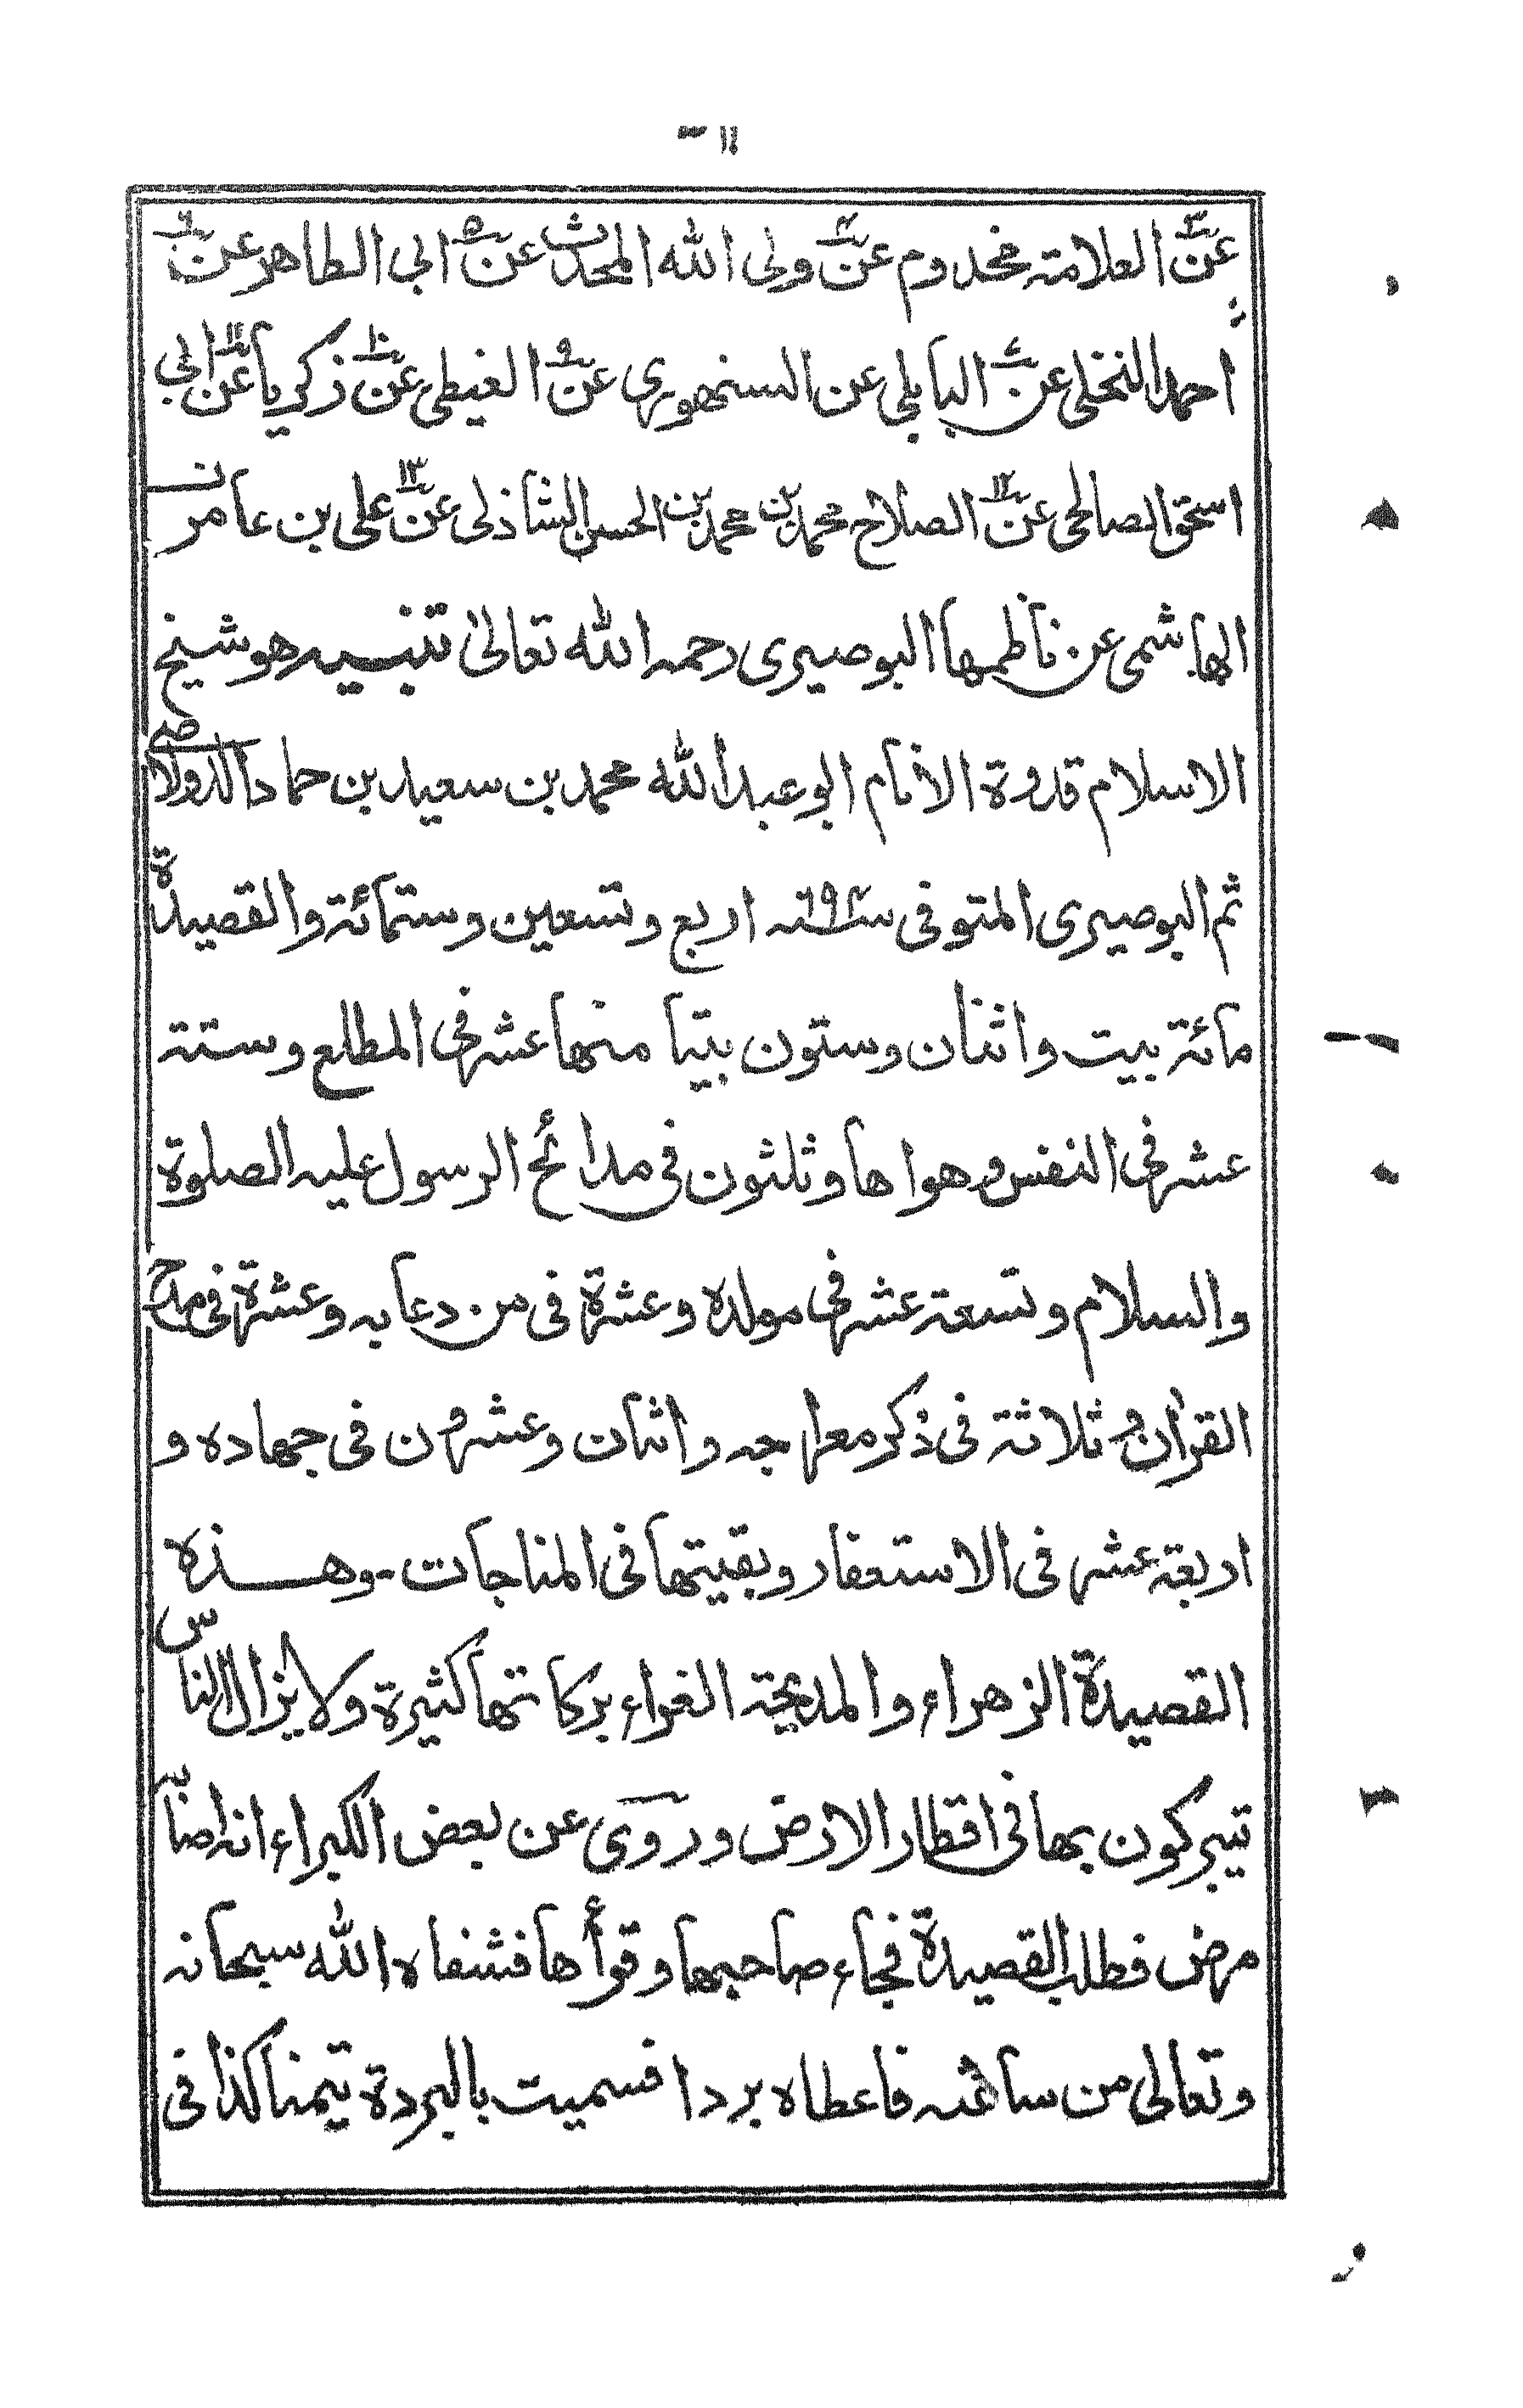 ١١ -
عن٣ العلامة مخدوم عن٤ ولى الله المحدث عن٥ ابي الطاهر عن٦
احمد النخلى عن٧ البابلي عن السنهوري عن٩ الغيطى عن١٠ زكريا عن١١ ابي
اسحق الصالحى عن١٢ الصلاح محمد بن محمد بن الحسن الشاذلى عن١٣ على بن عامر
الهاشمى عن ناظمها البوصيرى رحمه الله تعالىٰ تنبيه هو شيخ
الاسلام قدوة الأنام ابو عبد الله محمد بن سعيد بن حماد الدولاصى
ثم البوصيرى المتوفى سنة ٦٩٤ اربع وتسعين وستمائة والقصيدة
مائة بيت واثنان وستون بيتا منها عشر فى المطلع وستة
عشر فى النفس وهواها وثلثون فى مدائح الرسول عليه الصلوة
والسلام وتسعة عشر فى مولده وعشرة فى من دعا به وعشرة فى مدح
القرأن وثلاثة فى ذكر معراجه واثنان وعشرون فى جهاده و
اربعة عشر فى الاستغفار وبقيتها فى المناجات - وهذه
القصيدة الزهراء والمديحة الغراء بركاتها كثيرة ولا يزال الناس
تيبركون بها فى اقطار الارض وروى عن بعض الكبراء انه اصابه
مرض فطلب القصيدة فجاء صاحبها وقرأها فشفاه الله سبحانه
وتعالى من ساعته فاعطاه بردا فسميت بالبردة تيمنا كذا فى